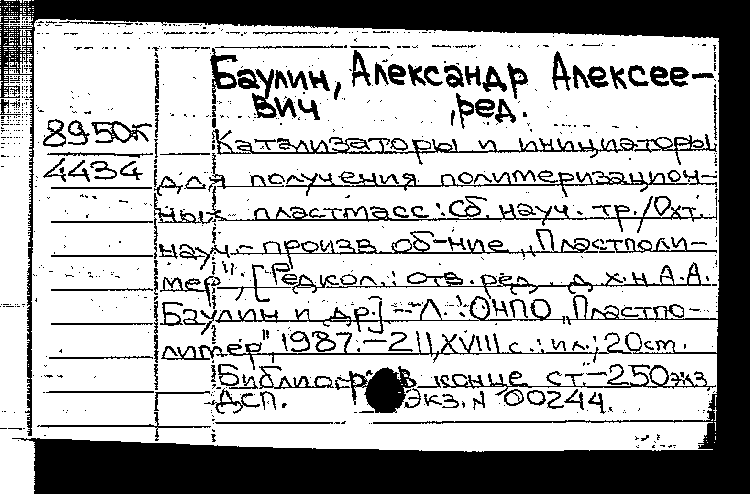 Баулин, Александр Алексее-
вич ,ред.
8950к
Катализаторы и инициаторы
4434
для получения полимеризацион-
ных пластмасс: Сб. науч. тр./Охт.
науч.-произв. об-ние „Пластполи-
мер"; [Редкол.: отв. ред. д.х.н А.А.
Баулин и др.] - Л.: ОНПО „Пластпо-
лимер", 1987. - 211, XVIII с.: ил.; 20 см.
Библиогр. в конце ст. - 250 экз
ДСП. Экз. N 00244.